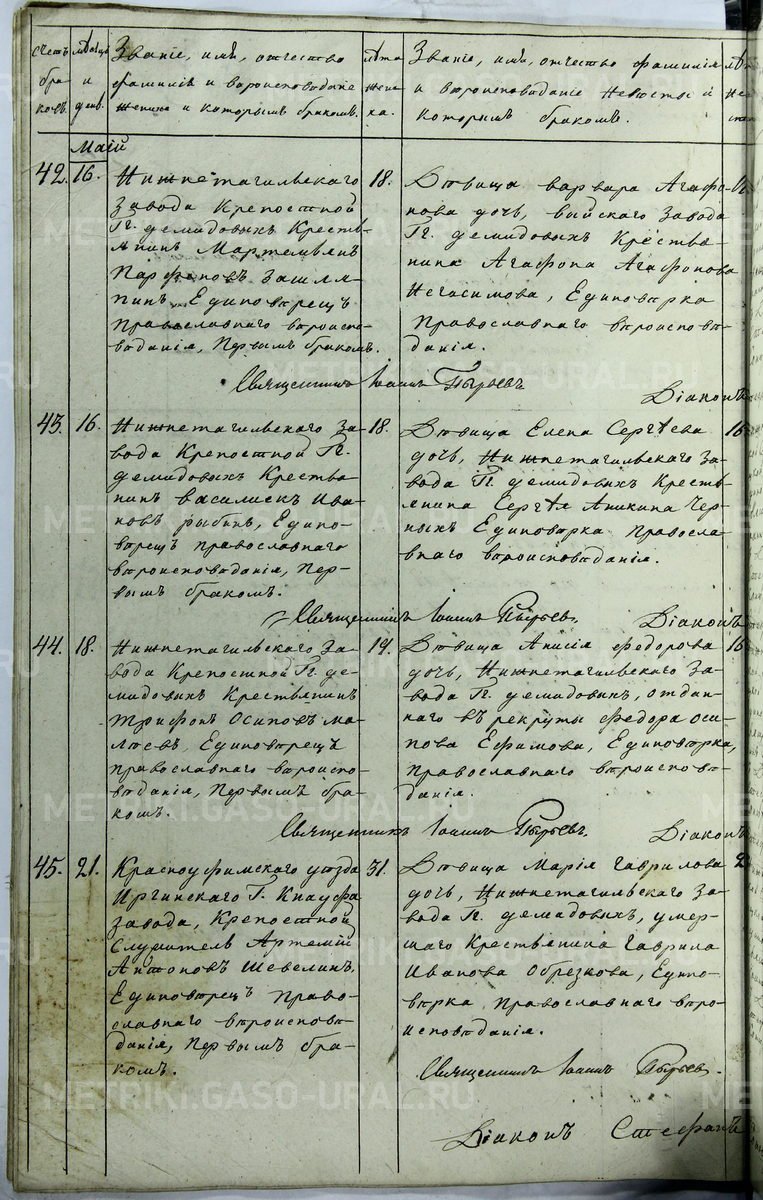 Счетъ браковъ.
Мѣсяцъ и день.
Званіе, имя, отчество
фамилія и вѣроисповѣданіе
жениха и которымъ бракомъ.
Лѣта жениха.
Званіе, имя, отчество фамилія
и вѣроисповѣданіе невѣсты и
которымъ бракомъ.
Маій
42. 16.
Нижнетагильскаго
завода Крепостной
Гг. демидовыхъ Крестья-
янинъ Мартемьянъ
Парфеновъ Зашля-
пинъ, Единовѣрецъ
православнаго вѣроиспо-
вѣданія, Первымъ бракомъ.
18.
Дѣвица варвара Агафо-
нова дочь, выйскаго завода
Гг. демидовыхъ Крестья-
нина Агафона Агафонова
Негасимова, Единовѣрка
Православнаго вѣроисповѣ-
данія.
Священникъ Іоаннъ Пырьевъ
Діаконъ
43. 16.
Нижнетагильскаго за-
вода Крепостной Гг.
демидовыхъ Крестья-
нинъ василискъ Ива-
новъ рыбинъ, Едино-
вѣрецъ православнаго
вѣроисповѣданія, Пер-
вымъ бракомъ.
18.
Дѣвица Елена Сергѣева
дочь, Нижнетагильскаго за-
вода Гг. демидовыхъ Кресть-
янина Сергѣя Аникина Чер-
ныхъ Единовѣрка Правосла-
внаго вѣроисповѣданія.
16
Священникъ Іоаннъ Пырьевъ.
Діаконъ
44. 18.
Нижнетагильскаго за-
вода Крепостной Гг. де-
мидовыхъ Крестьянинъ
Трифонъ Осиповъ ма-
Единовѣрецъ
православнаго вѣроиспо-
вѣданія, Первымъ бра-
комъ.
19.
Дѣвица Анисія федорова
дочь, Нижнетагильскаго за-
вода Гг. демидовыхъ, отдан-
наго въ рекруты федора оси-
пова Ефимова, Единовѣрка,
православнаго вѣроисповѣ-
данія.
16
Священникъ Іоаннъ Пырьевъ.
Діаконъ
45. 21.
Красноуфимскаго уѣзда
Иргинскаго Г. Кнауфа
завода, Крепостной
Служитель Артемій
Антоновъ Шевелинъ,
Единовѣрецъ право-
славнаго вѣроисповѣ-
данія, Первымъ бра-
комъ.
31.
Дѣвица Марія гаврилова
дочь, Нижнетагильскаго за-
вода Гг. демидовыхъ, умер-
шаго Крестьянина гаврила
Иванова Обрезкова, Едино-
вѣрка Православнаго вѣро-
исповѣданія.
Священникъ Іоаннъ Пырьевъ.
Діаконъ Стефанъ
METRIKI.GASO-URAL.RU